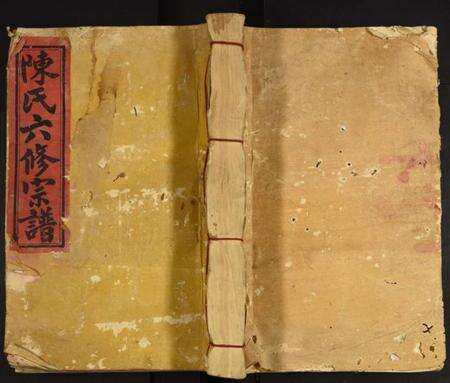 陳氏六修宗譜